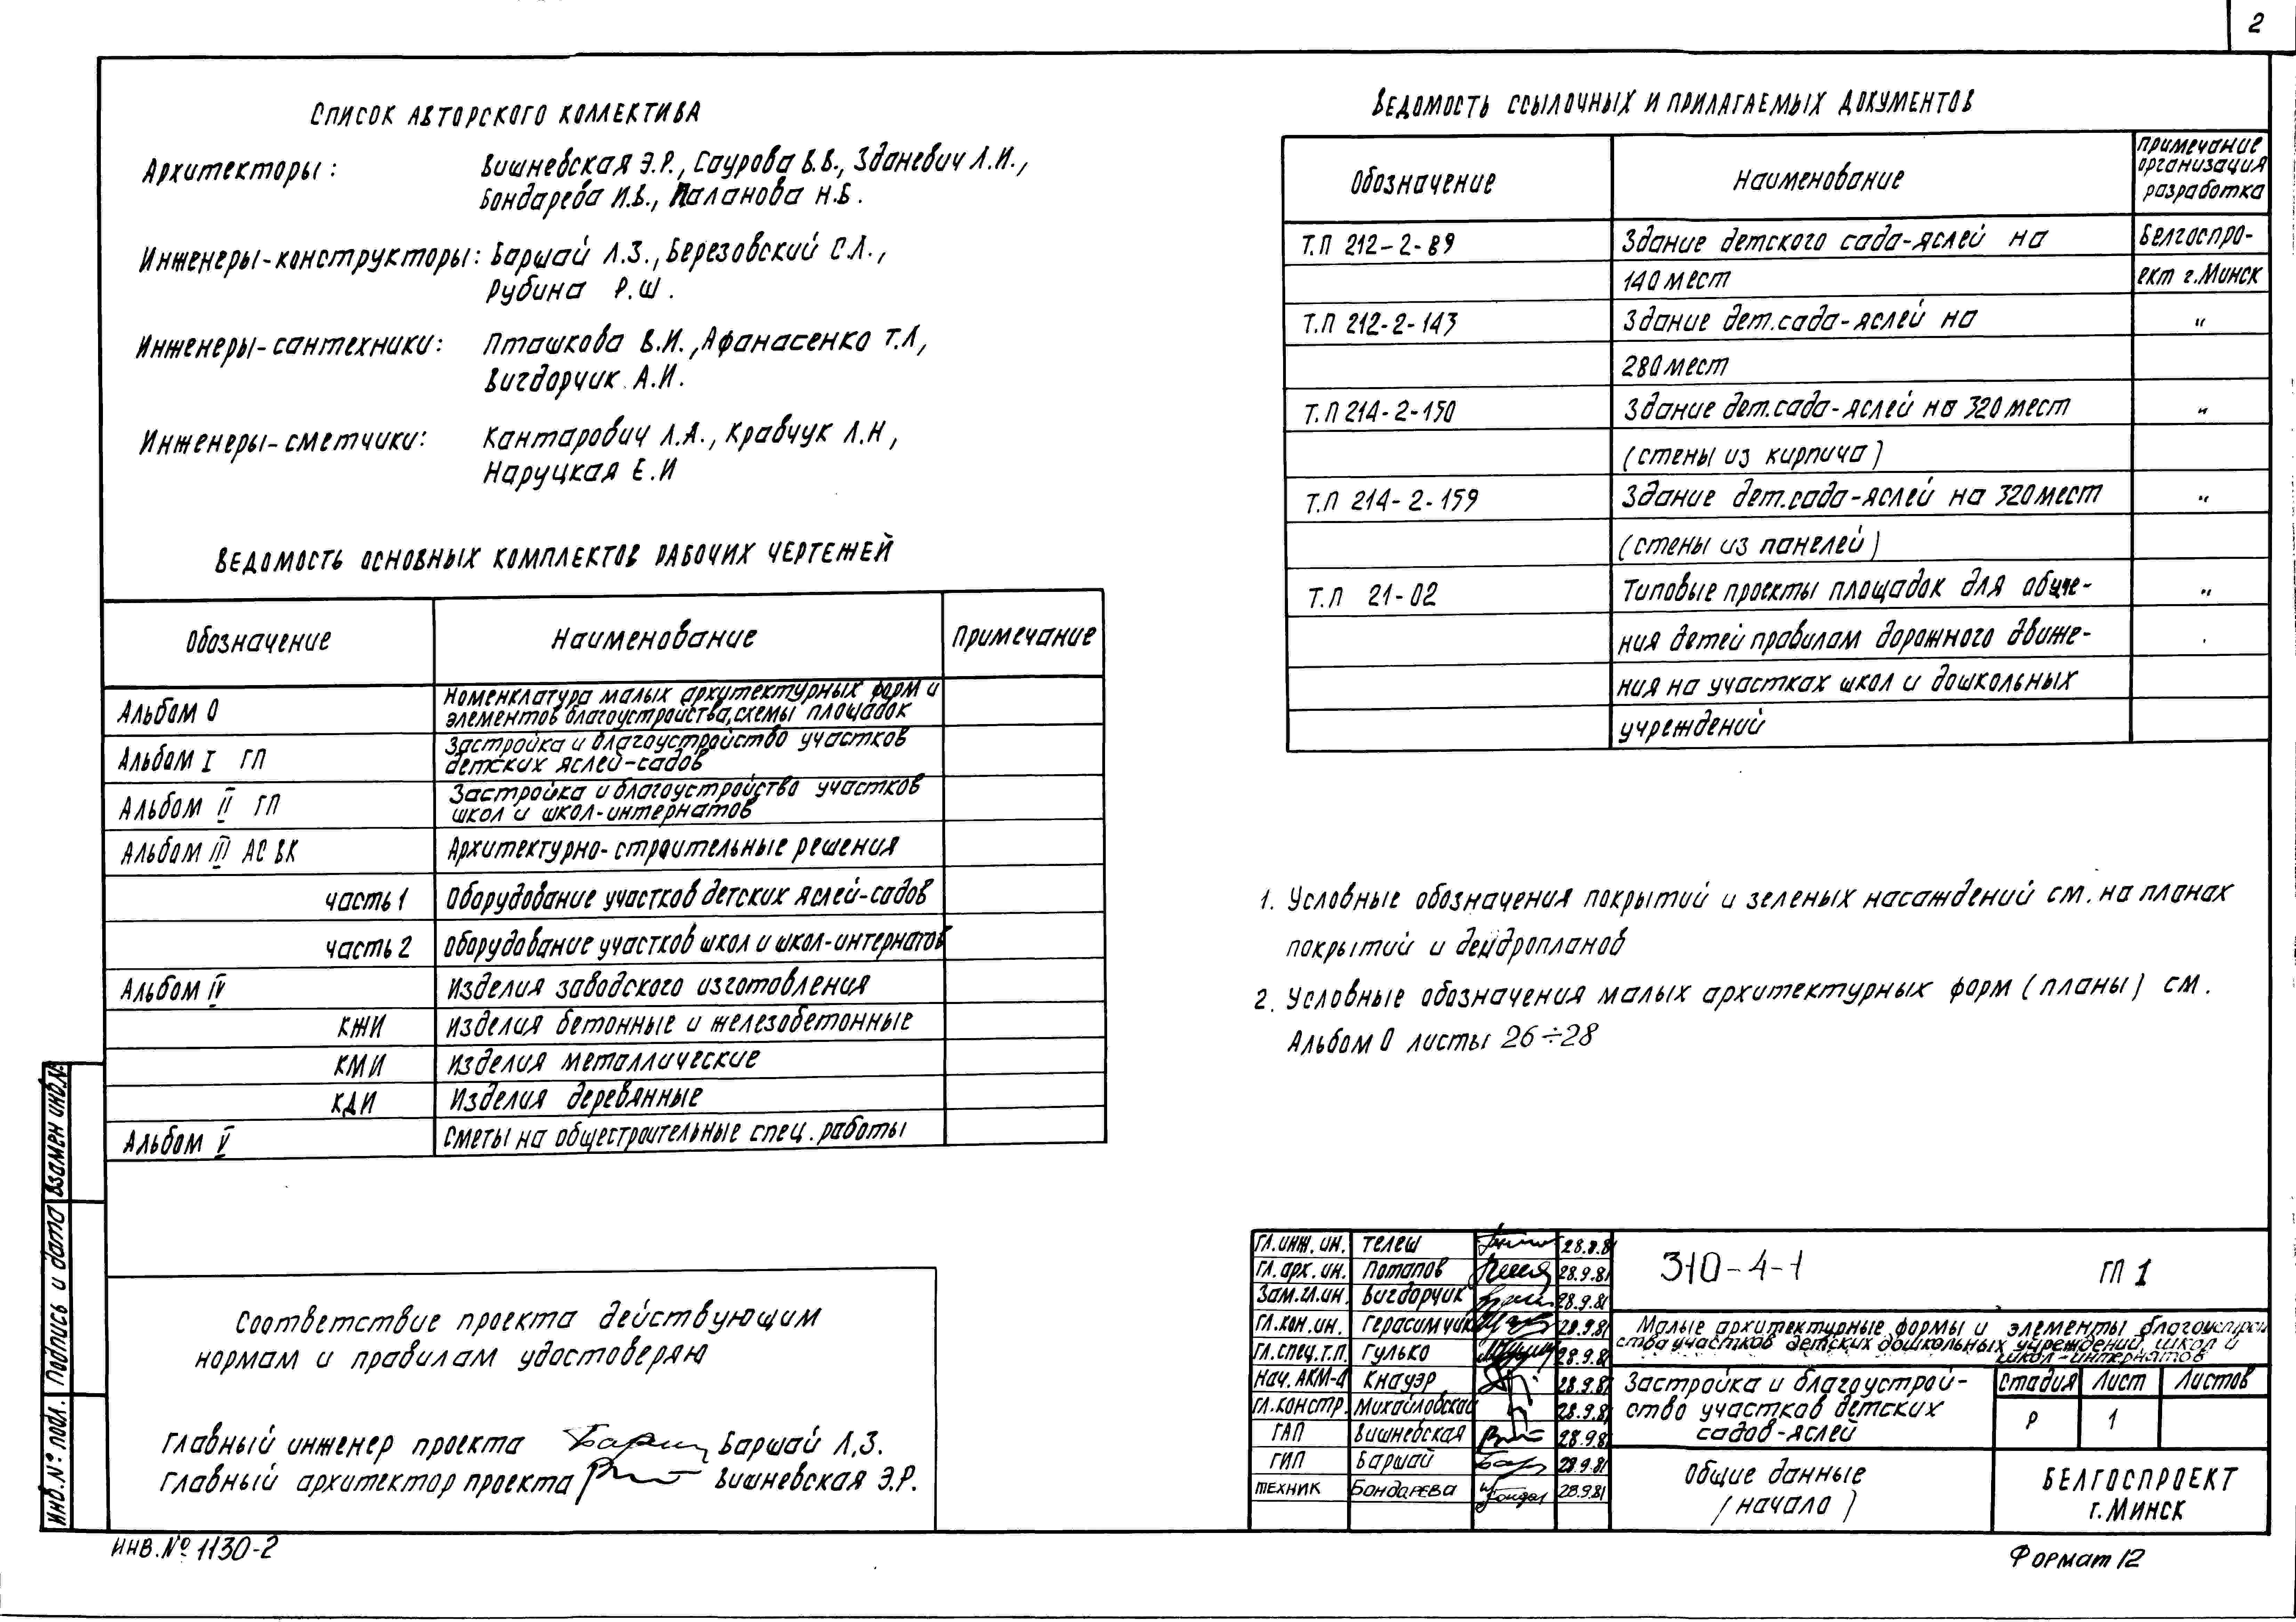 2
Список авторского коллектива
Архитекторы: Вишневская Э.Р., Саурова В.В., Зданевич Л.И.,
Бондарева И.В., Паланова Н.Б.
Инженеры-конструкторы: Баршай Л.З., Березовский С.Л.,
Рубина Р.Ш.
Инженеры-сантехники: Пташкова В.И., Афанасенко Т.Л,
Вигдорчик А.И.
Инженеры-сметчики: Кантарович Л.А., Кравчук Л.Н,
Наруцкая Е.И
Ведомость основных комплектов рабочих чертежей
Обозначение Наименование Примечание
Альбом 0 Номенклатура малых архитектурных форм и
элементов благоустройства, схемы площадок
Альбом I ГП Застройка и благоустройство участков
детских яслей-садов
Альбом II ГП Застройка и благоустройство участков
школ и школ-интернатов
Альбом III АС ВК Архитектурно-строительные решения
часть 1 Оборудование участков детских яслей-садов
часть 2 Оборудование участков школ и школ-интернатов
Альбом IV Изделия заводского изготовления
КЖИ Изделия бетонные и железобетонные
КМИ Изделия металлические
КДИ Изделия деревянные
Альбом V Сметы на общестроительные спец. работы
Соответствие проекта действующим
нормам и правилам удостоверяю
Главный инженер проекта Баршай Л.З.
Главный архитектор проекта Вишневская Э.Р.
Инв.№ подл. Подпись и дата Взамен инв.№
Инв.№ 1130-2
Ведомость ссылочных и прилагаемых документов
Обозначение Наименование примечание
организация
разработка
Т.П 212-2-89 Здание детского сада-яслей на Белгоспро-
140 мест ект г.Минск
Т.П 212-2-143 Здание дет.сада-яслей на "
280 мест
Т.П 214-2-150 Здание дет.сада-яслей на 320 мест "
(стены из кирпича)
Т.П 214-2-159 Здание дет.сада-яслей на 320 мест "
(стены из панелей)
Т.П 21-02 Типовые проекты площадок для обуче- "
ния детей правилам дорожного движе-
ния на участках школ и дошкольных
учреждений
1. Условные обозначения покрытий и зеленых насаждений см. на планах
покрытий и дендропланов
2. Условные обозначения малых архитектурных форм (планы) см.
Альбом 0 листы 26÷28
Гл.инж.ин. Телеш
Гл.арх.ин. Потапов 28.9.81
Зам.гл.ин. Вигдорчик 28.9.81
Гл.кон.ин. Герасимчик 28.9.81
Гл.спец.т.п. Гулько 28.9.81
Нач. АКМ-4 Кнауэр 28.9.81
Гл.констр. Михайловская 28.9.81
ГАП Вишневская 28.9.81
ГИП Баршай 28.9.81
Техник Бондарева 28.9.81
310-4-1 ГП 1
Малые архитектурные формы и элементы благоустрой
ства участков детских дошкольных учреждений, школ и
школ-интернатов
Застройка и благоустрой-
ство участков детских
садов-яслей
Стадия Лист Листов
Р 1
Общие данные
(начало)
БЕЛГОСПРОЕКТ
г. Минск
Формат 12